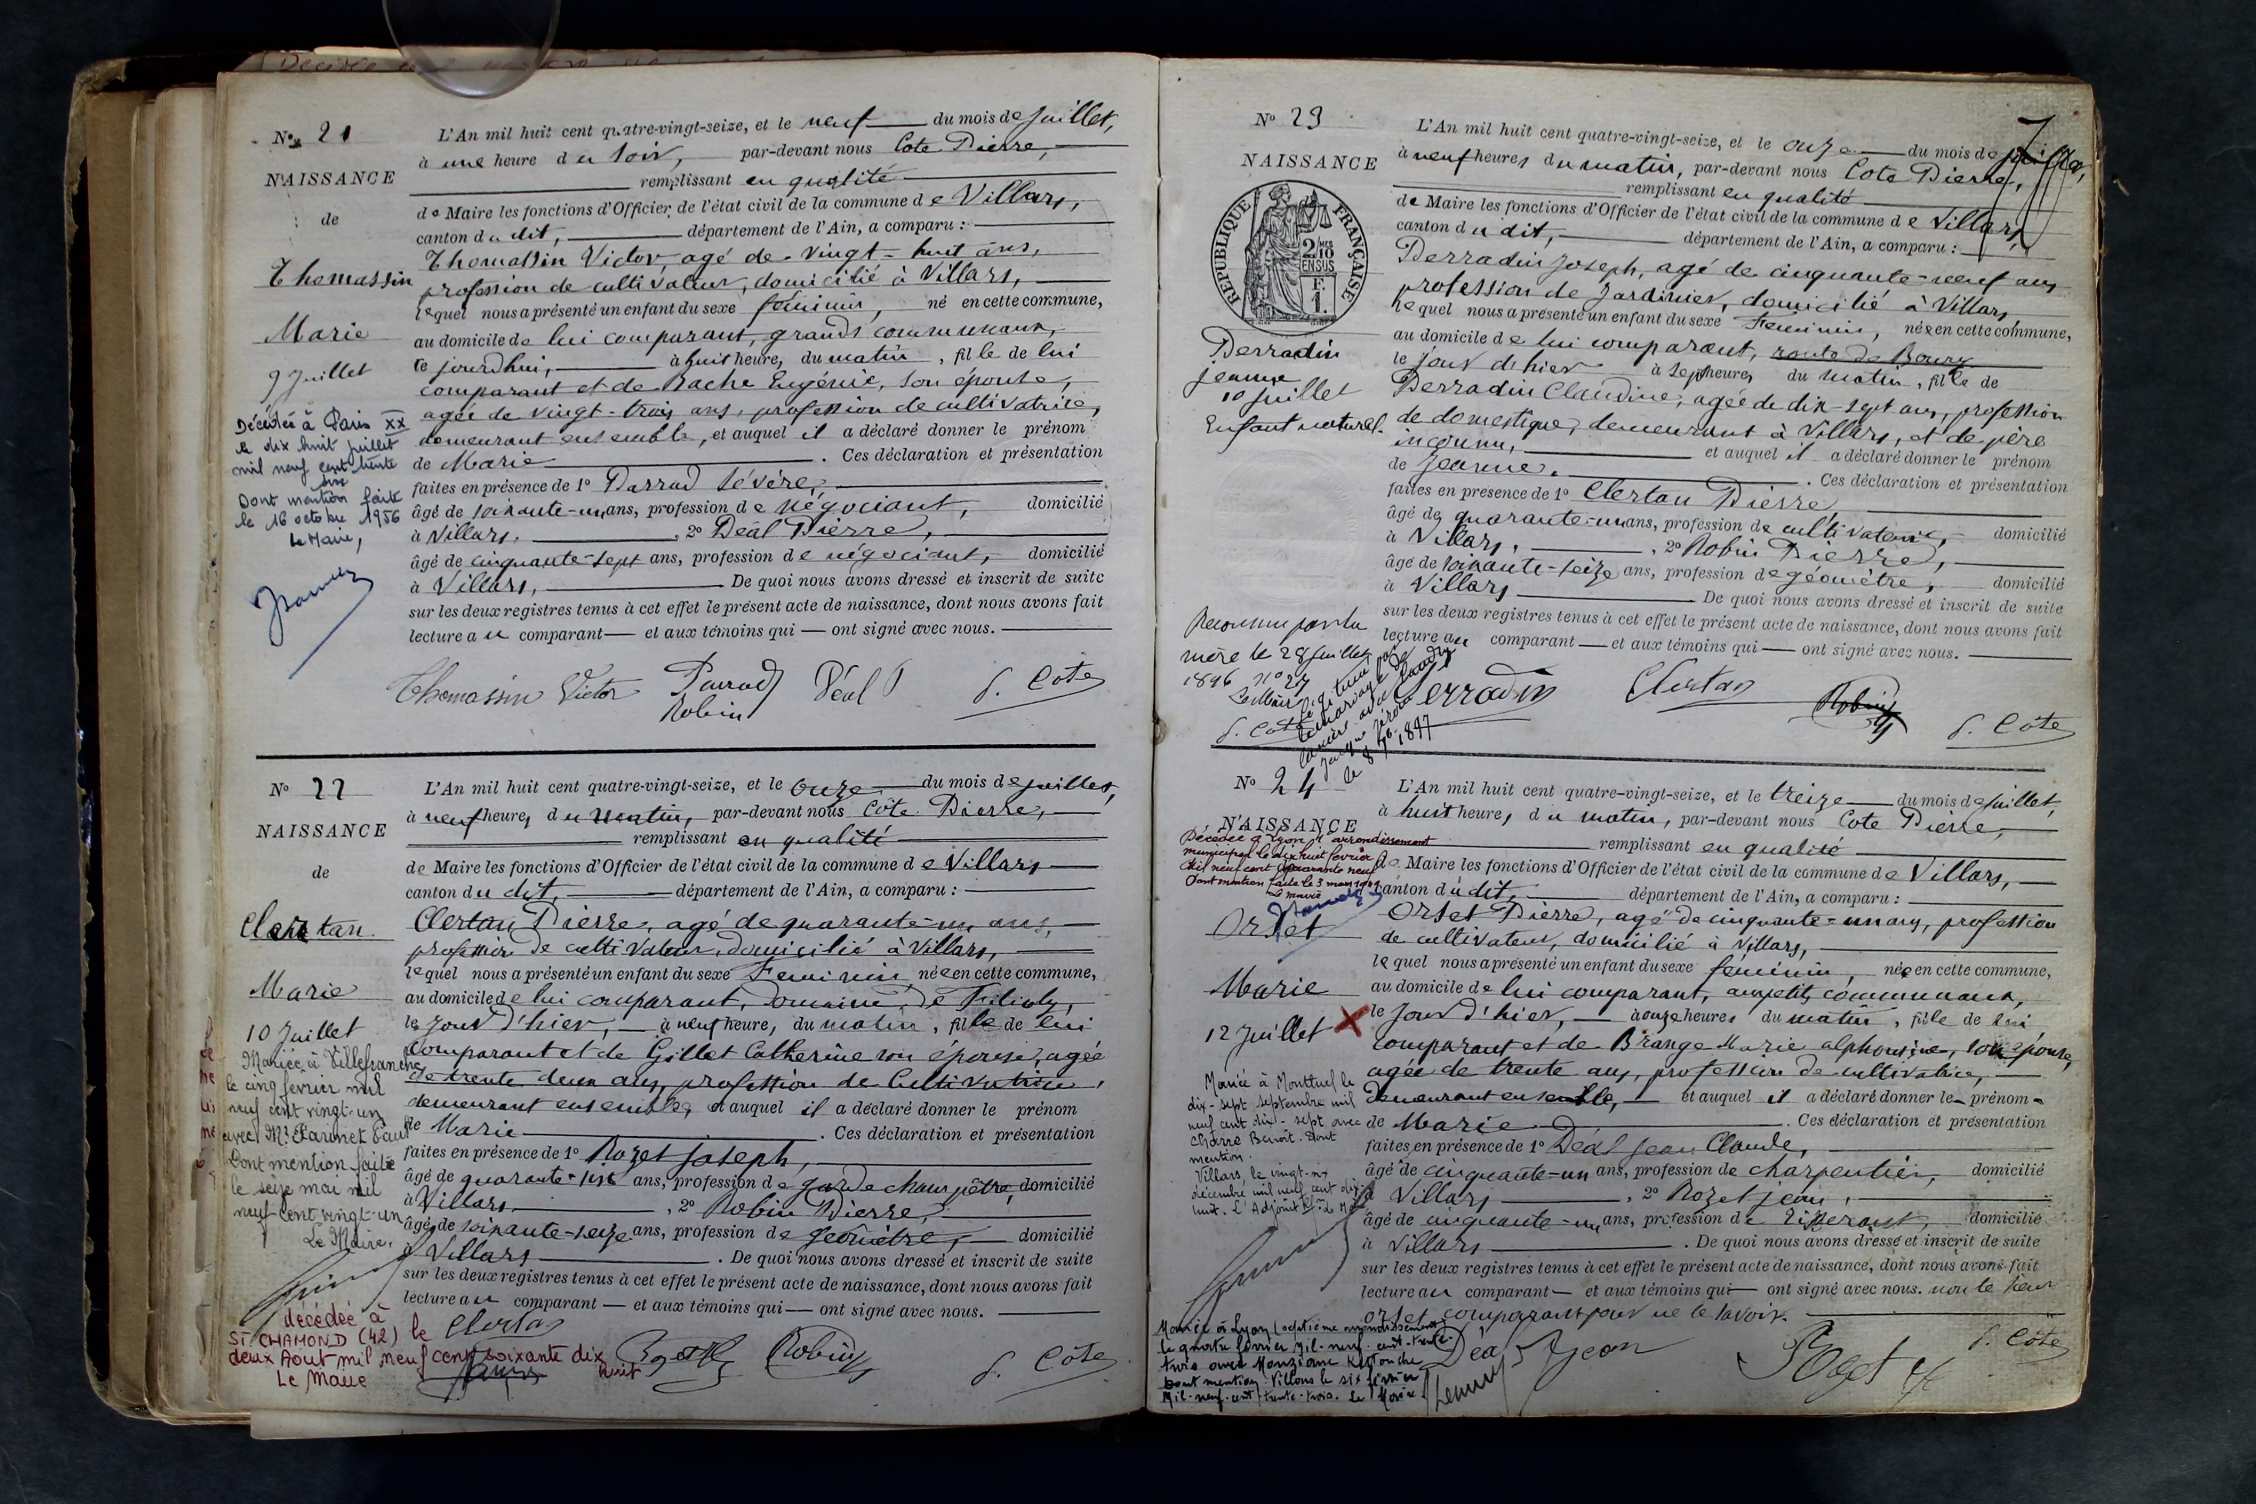 N° 21
NAISSANCE
de
Thomassin
Marie
9 Juillet
Décédée à Paris XX
le dix huit juillet
mil neuf cent trente
six
Dont mention faite
le 16 octobre 1956
Le Maire,
L'An mil huit cent quatre-vingt-seize, et le neuf du mois de Juillet,
à une heure du soir, par-devant nous Cote Pierre,
remplissant en qualité
de Maire les fonctions d'Officier de l'état civil de la commune de Villars,
canton du dit, département de l'Ain, a comparu :
Thomassin Victor, agé de vingt-huit ans,
profession de cultivateur, domicilié à Villars,
lequel nous a présenté un enfant du sexe féminin, né en cette commune,
au domicile de lui comparant, grands communeaux,
ce jourdhui, à huit heures du matin, fille de lui
comparant et de Rache Eugénie, son épouse,
agée de vingt-trois ans, profession de cultivatrice,
demeurant ensemble, et auquel il a déclaré donner le prénom
de Marie. Ces déclaration et présentation
faites en présence de 1° Parrad Sévère,
âgé de soixante-un ans, profession de négociant, domicilié
à Villars, 2° Déal Pierre,
âgé de cinquante-sept ans, profession de négociant, domicilié
à Villars, De quoi nous avons dressé et inscrit de suite
sur les deux registres tenus à cet effet le présent acte de naissance, dont nous avons fait
lecture au comparant et aux témoins qui ont signé avec nous.
Thomassin Victor Parrad Déal P
Robin
P. Cote
N° 22
NAISSANCE
de
Clertan
Marie
10 Juillet
Mariée à Villefranche
le cinq février mil
neuf cent vingt-un
avec Mr
Dont mention faite
le seize mai mil
neuf cent vingt-un
Le Maire,
décédée à
ST CHAMOND (42) le
deux Aout mil neuf cent soixante dix
huit
Le Maire
L'An mil huit cent quatre-vingt-seize, et le onze du mois de juillet,
à neuf heures du matin, par-devant nous Côte Pierre,
remplissant en qualité
de Maire les fonctions d'Officier de l'état civil de la commune de Villars
canton du dit, département de l'Ain, a comparu :
Clertan Pierre, agé de quarante-un ans,
profession de cultivateur, domicilié à Villars,
lequel nous a présenté un enfant du sexe Feminin, née en cette commune,
au domicile de lui comparant, Domaine de
le jour d'hier, à neuf heures du matin, fille de lui
comparant et de Gillet Catherine son épouse, agée
de trente deux ans, profession de Cultivatrice,
demeurant ensemble, et auquel il a déclaré donner le prénom
de Marie. Ces déclaration et présentation
faites en présence de 1° Rozet Joseph,
âgé de quarante-six ans, profession de garde champêtre, domicilié
à Villars, 2° Robin Pierre,
âgé de soixante-seize ans, profession de géomètre, domicilié
à Villars. De quoi nous avons dressé et inscrit de suite
sur les deux registres tenus à cet effet le présent acte de naissance, dont nous avons fait
lecture au comparant et aux témoins qui ont signé avec nous.
Clertan Rozet Robin P. Côte
7
N° 23
NAISSANCE
RÉPUBLIQUE FRANÇAISE
2/10
EN SUS
F.
1.
Perradin
jeanne
10 Juillet
Enfant naturel.
Reconnu par la
mère le 28 Juillet
1896 N° 27
Le Maire
P. Cote
Légitimé par
le mariage de
le 8 7b. 1897
L'An mil huit cent quatre-vingt-seize, et le onze du mois de juillet,
à neuf heures du matin, par-devant nous Cote Pierre,
remplissant en qualité
de Maire les fonctions d'Officier de l'état civil de la commune de Villars,
canton du dit, département de l'Ain, a comparu :
Perradin Joseph, agé de cinquante-neuf ans
profession de Jardinier, domicilié à Villars,
lequel nous a présenté un enfant du sexe Feminin, née en cette commune,
au domicile de lui comparant, route de Bourg
le jour d'hier à sept heures du matin, fille de
Perradin Claudine, agée de dix-sept ans, profession
de domestique, demeurant à Villars, et de père
inconnu, et auquel il a déclaré donner le prénom
de Jeanne. Ces déclaration et présentation
faites en présence de 1° Clertan Pierre
âgé de quarante-un ans, profession de cultivateur, domicilié
à Villars, 2° Robin Pierre,
âge de soixante-seize ans, profession de géomètre, domicilié
à Villars De quoi nous avons dressé et inscrit de suite
sur les deux registres tenus à cet effet le présent acte de naissance, dont nous avons fait
lecture au comparant et aux témoins qui ont signé avec nous.
Perradin Clertan Robin P. Cote
N° 24
NAISSANCE
Décédée à Lyon 4e arrondissement
municipal le dix huit février
mil neuf cent quarante neuf
Dont mention faite le 3 mars 1949
Le maire
Orset
Marie
12 Juillet X
Mariée à Montluel le
dix-sept septembre mil
neuf cent dix-sept avec
Charre Benoit. Dont
mention.
Villars, le vingt-six
décembre mil neuf cent dix
huit. L'Adjoint ff. de Maire
Mariée à Lyon (septième arrondissement)
le quatre février Mil-neuf-cent-trente-
trois avec Meziane Kettouche
Dont mention. Villars le six février
Mil-neuf-cent trente-trois. Le Maire
L'An mil huit cent quatre-vingt-seize, et le treize du mois de juillet,
à huit heures du matin, par-devant nous Cote Pierre,
remplissant en qualité
de Maire les fonctions d'Officier de l'état civil de la commune de Villars,
canton du dit, département de l'Ain, a comparu :
Orset Pierre, agé de cinquante-un ans, profession
de cultivateur, domicilié à Villars,
lequel nous a présenté un enfant du sexe féminin, née en cette commune,
au domicile de lui comparant, aux petits communaux,
le jour d'hier, à onze heures du matin, fille de lui
comparant et de Brange Marie alphonsine, son épouse,
agée de trente ans, profession de cultivatrice,
demeurant ensemble, et auquel il a déclaré donner le prénom
de Marie. Ces déclaration et présentation
faites en présence de 1° Déal Jean Claude,
âgé de cinquante-un ans, profession de charpentier, domicilié
à Villars, 2° Rozet jean,
âgé de cinquante-un ans, profession de Tisserant, domicilié
à Villars. De quoi nous avons dressé et inscrit de suite
sur les deux registres tenus à cet effet le présent acte de naissance, dont nous avons fait
lecture au comparant et aux témoins qui ont signé avec nous. non le sieur
Orset comparant pour ne le savoir.
Déal Jean Roget P. Côte